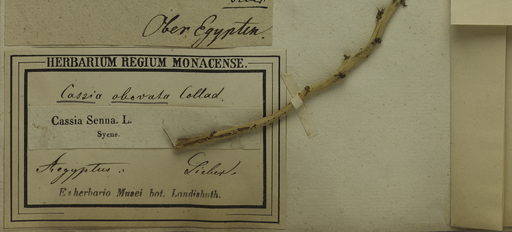 Ober Egypten.
HERBARIUM REGIUM MONACENSE.
Cassia obovata Collad.
Cassia Senna. L.
Syene.
Aegyptus. Sieber.
Ex herbario Musei bot. Landishuth.